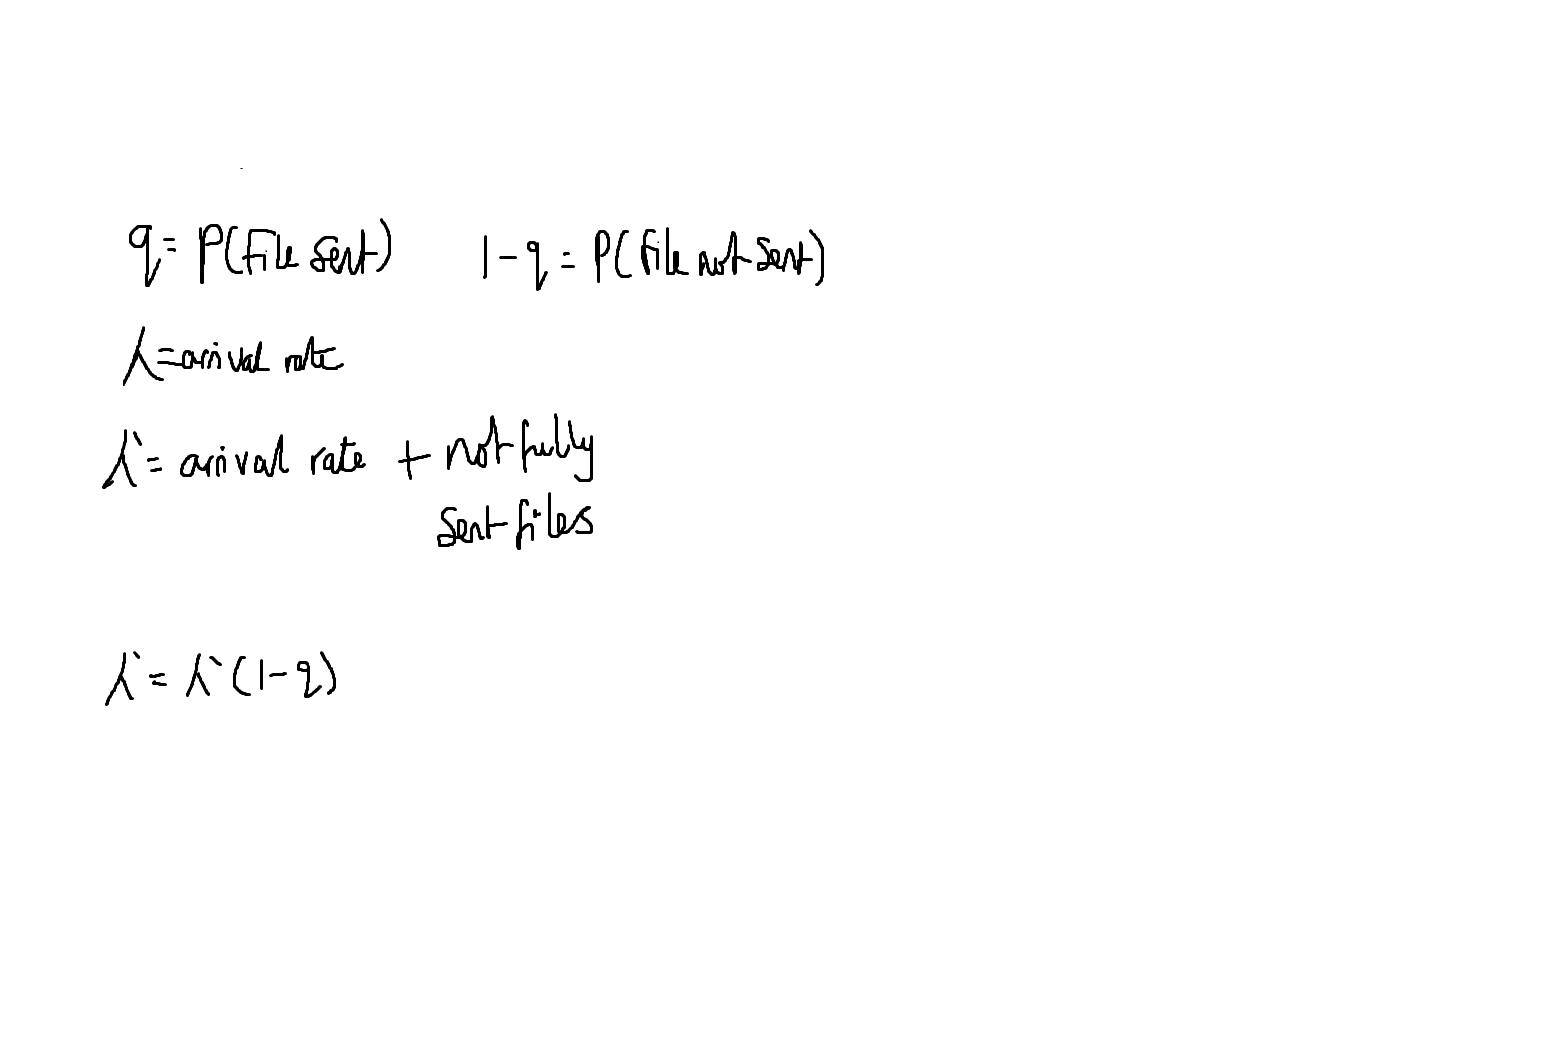 q = P(File Sent) 1-q = P(File not Sent)
λ = arrival rate
λ` = arrival rate + not fully
Sent files
λ` = λ` (1-q)